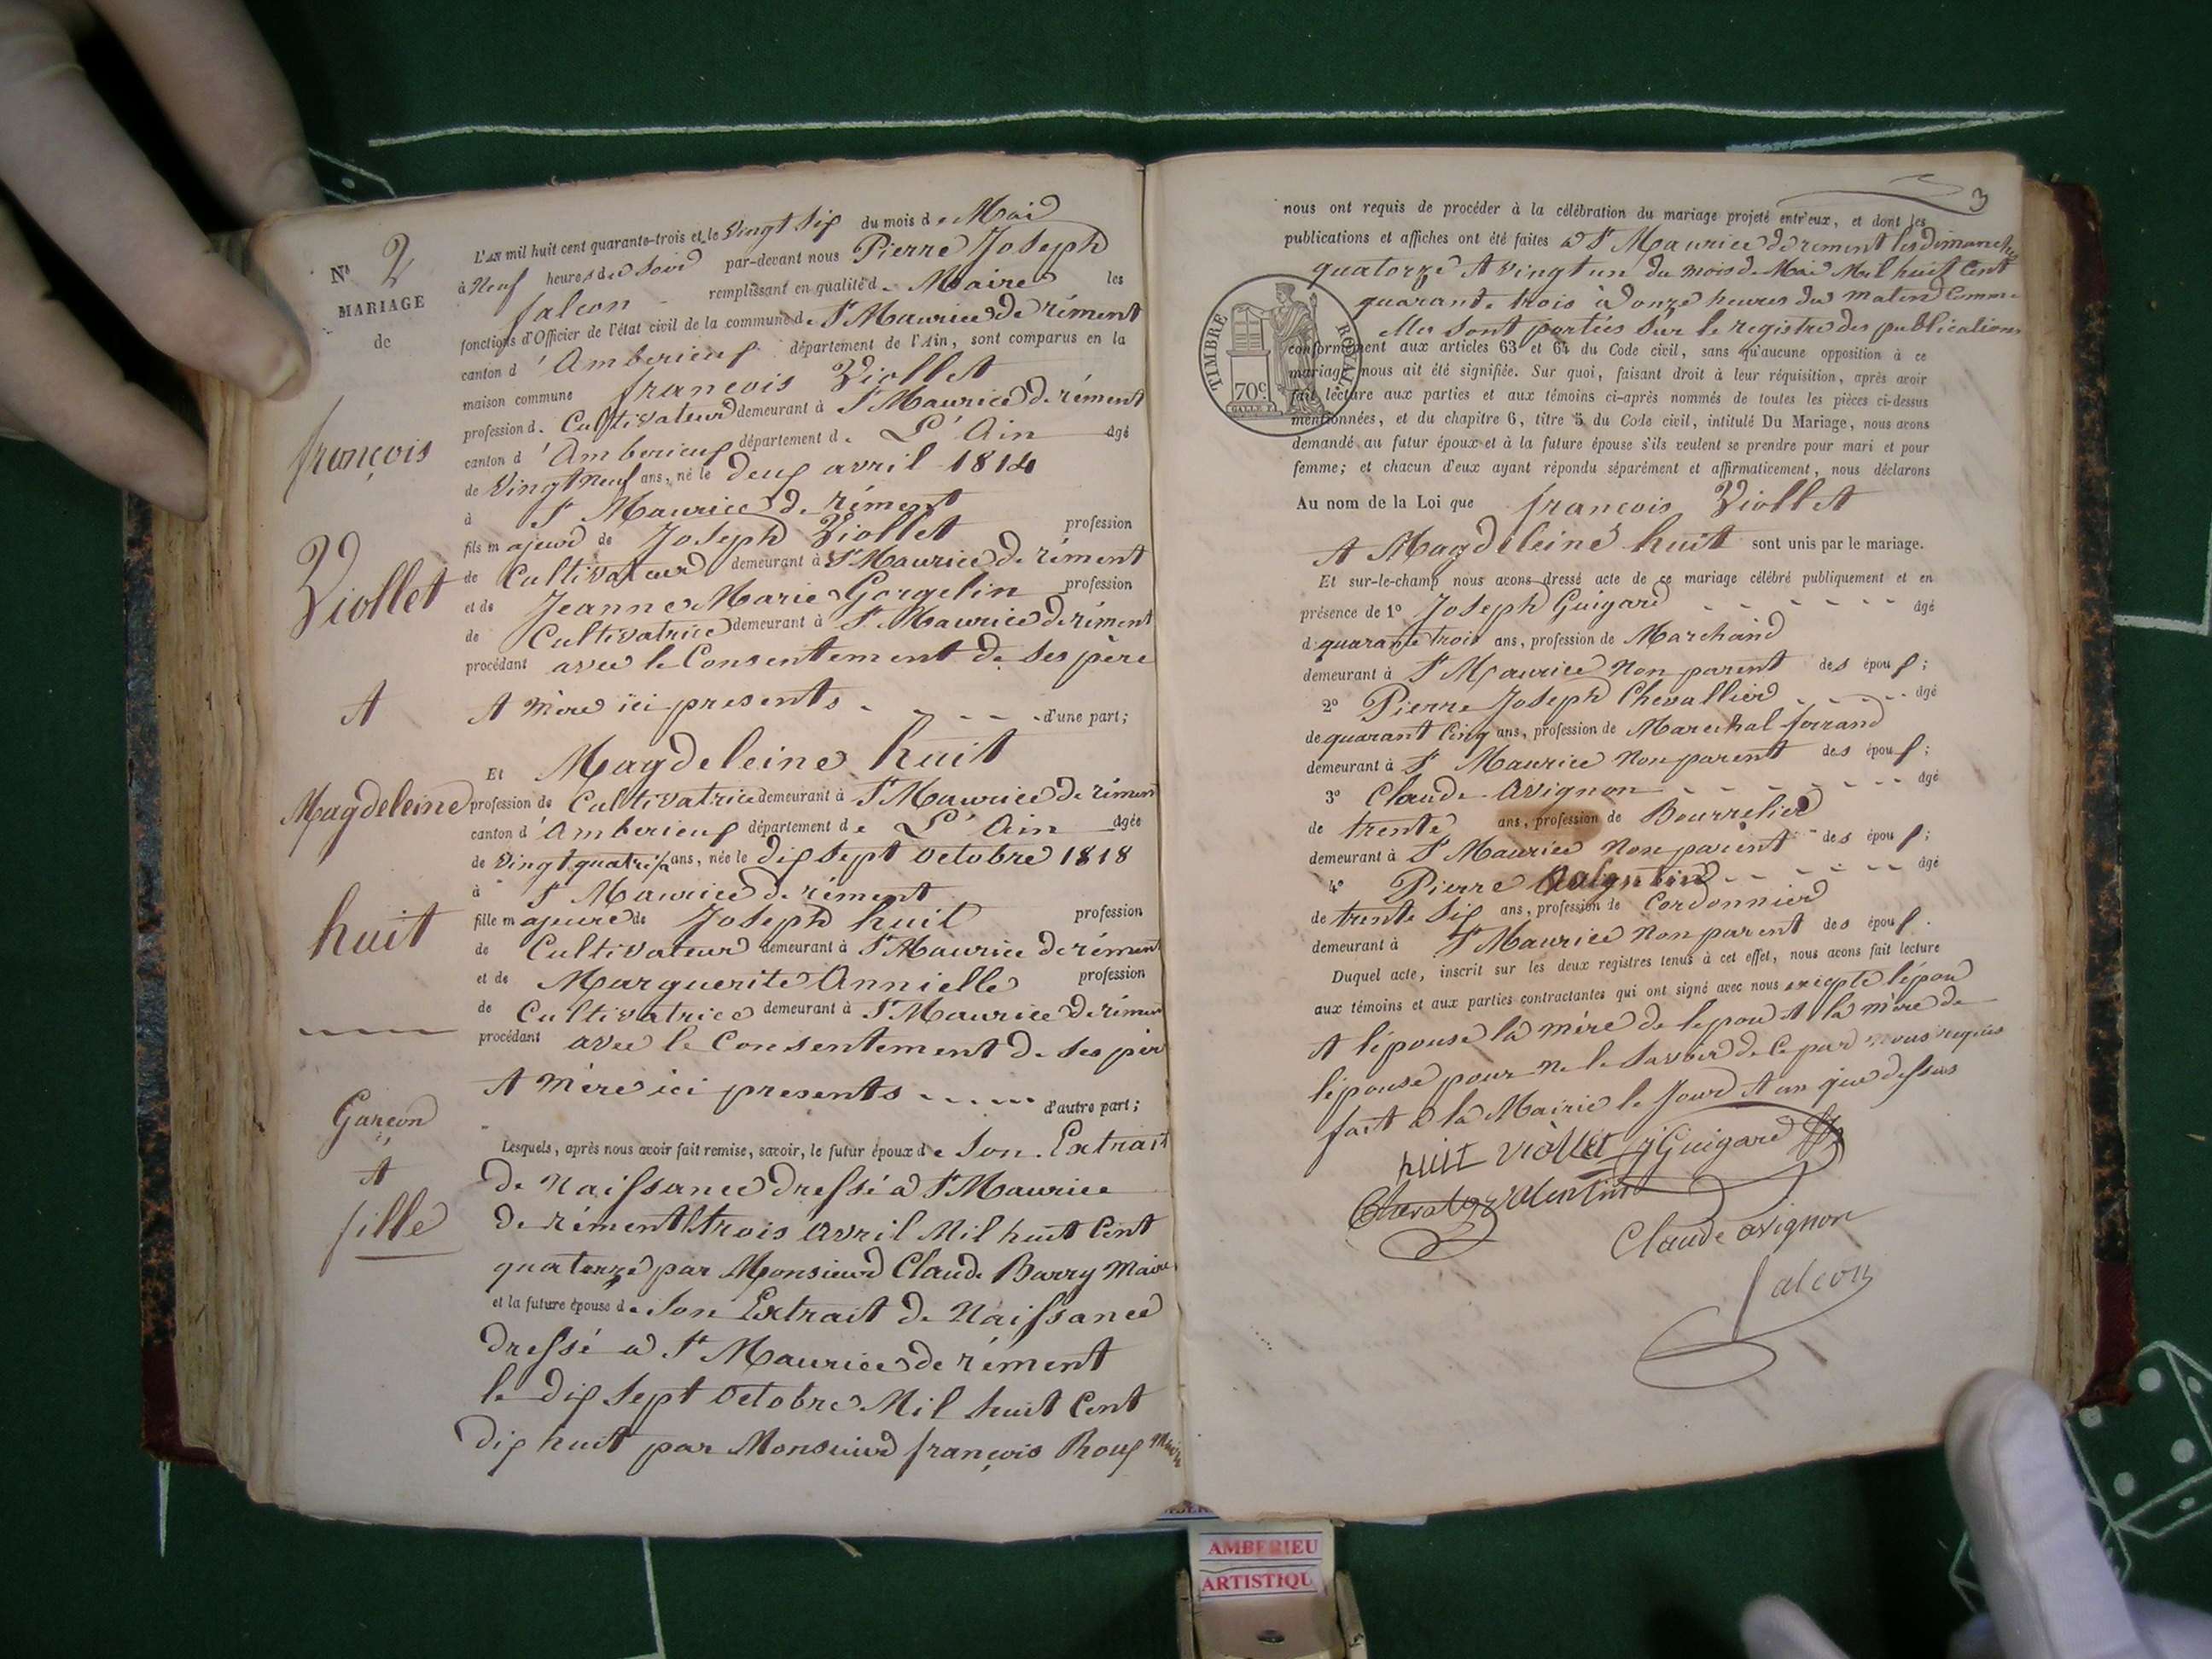 N° 2
MARIAGE
de
françois
Viollet
et
Magdeleine
huit
Garçon
et
fille
L'an mil huit cent quarante-trois et le Vingt Six du mois de Mai
à Neuf heures du Soir par-devant nous Pierre Joseph
falcon remplissant en qualité de Maire les
fonctions d'Officier de l'état civil de la commune de St Maurice de rément
canton d'Amberieux département de l'Ain, sont comparus en la
maison commune françois Viollet
profession de Cultivateur demeurant à St Maurice de rément
canton d'Amberieux département de L'Ain âgé
de Vingt neuf ans, né le deux avril 1814
à St Maurice de rément
fils majeur de Joseph Viollet profession
de Cultivateur demeurant à St Maurice de rément
et de Jeanne Marie Gorgelin profession
de Cultivatrice demeurant à St Maurice de rément
procédant avec le Consentement de Ses père
et Mère ici presents d'une part;
Et Magdeleine huit
profession de Cultivatrice demeurant à St Maurice de rément
canton d'Amberieux département de L'Ain âgée
de Vingt quatre ans, née le dix Sept Octobre 1818
à St Maurice de rément
fille majeure de Joseph huit profession
de Cultivateur demeurant à St Maurice de rément
et de Marguerite Annielle profession
de Cultivatrice demeurant à St Maurice de rément
procédant avec le Consentement de Ses pèr
et Mère ici presents d'autre part;
Lesquels, après nous avoir fait remise, savoir, le futur époux de Son Extrait
de Naissance dressé à St Maurice
de rément le trois Avril Mil huit Cent
quatorze par Monsieur Claude Barry Maire
et la future épouse de Son Extrait de Naissance
dressé à St Maurice de rément
le dix Sept Octobre Mil huit Cent
dix huit par Monsieur françois Roux Maire
3
nous ont requis de procéder à la célébration du mariage projeté entr'eux, et dont les
publications et affiches ont été faites à St Maurice de rément les dimanches
quatorze et vingt un du mois de Mai Mil huit Cent
quarante trois à onze heures du Matin Comme
elles Sont portées Sur le registre des publications
TIMBRE ROYAL
70c
conformément aux articles 63 et 64 du Code civil, sans qu'aucune opposition à ce
mariage nous ait été signifiée. Sur quoi, faisant droit à leur réquisition, après avoir
fait lecture aux parties et aux témoins ci-après nommés de toutes les pièces ci-dessus
mentionnées, et du chapitre 6, titre 5 du Code civil, intitulé Du Mariage, nous avons
demandé au futur époux et à la future épouse s'ils veulent se prendre pour mari et pour
femme; et chacun d'eux ayant répondu séparément et affirmativement, nous déclarons
Au nom de la Loi que françois Viollet
et Magdeleine huit sont unis par le mariage.
Et sur-le-champ nous avons dressé acte de ce mariage célébré publiquement et en
présence de 1° Joseph Guigard âgé
de quarante trois ans, profession de Marchand
demeurant à St Maurice Non parent des époux;
2° Pierre Joseph Chevallier âgé
de quarant Cinq ans, profession de Marechal ferrand
demeurant à St Maurice Non parent des époux;
3° Claude Avignon âgé
de trente ans, profession de Bourrelier
demeurant à St Maurice Non parent des époux;
4° Pierre Valentin âgé
de trente Six ans, profession de Cordonnier
demeurant à St Maurice Non parent des époux.
Duquel acte, inscrit sur les deux registres tenus à cet effet, nous avons fait lecture
aux témoins et aux parties contractantes qui ont signé avec nous excepté l'époux
et l'épouse la mère de l'epoux et la mère de
l'épouse pour ne le Savoir de Ce par nous requis
fait à la Mairie le Jour et an que dessus
huit viollet J Guigard
Valentin
Claude avignon
falcon
AMBERIEU
ARTISTIQU